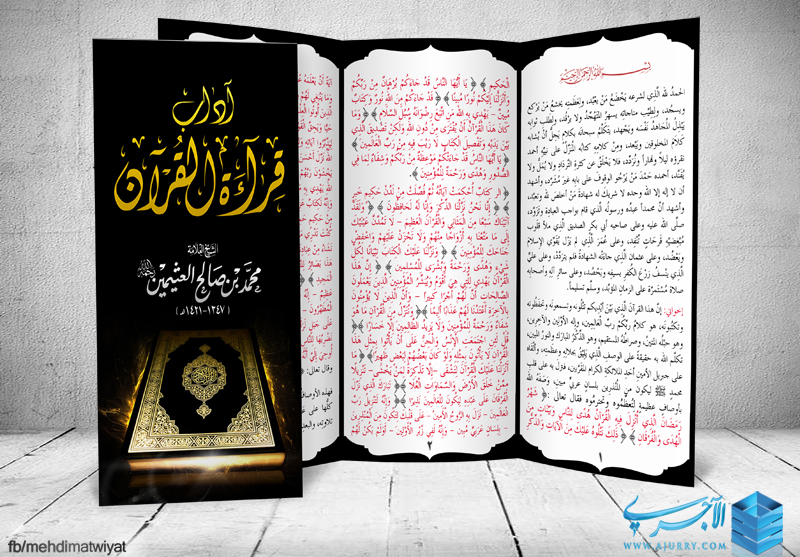 آداب
قراءة القرآن
للشيخ العلامة
محمد بن صالح العثيمين
رحمه الله
(١٣٤٧-١٤٢١هـ)
بسم الله الرحمن الرحيم
الحمدُ لله الَّذِي لشرعه يَخْضَعُ مَنْ يعْبُد، ولعَظَمتِه يخشعُ مَنْ يرْكع
ويسجُد، ولِطِيْبِ مناجاتِه يسهرُ المتَهْجِّدُ ولا يرْقُد، ولِطلبِ ثوابِه
يَبْذِلُ المُجَاهدُ نَفْسَه ويَجْهد، يتكلَّمُ سبحانَه بكلامٍ يَجِلُّ أنْ يُشَابِه
كلامَ المخلوقين ويَبْعد، ومِنْ كلامِه كتابُه المُنَزَّلُ على نبيِّه أحمد
نقرؤه ليلاً ونهاراً ونُرَدِّد، فلا يَخْلُق عن كثرةِ التَّردَادِ ولا يُمَلُّ ولا
يُفَنَّد، أحمده حَمْدَ مَنْ يرْجُو الوقوفَ على بابِه غيرَ مُشَرَّد، وأشهد
أن لا إله إلا الله وحده لا شريك له شهادةَ مَنْ أخلصَ لله وتعبَّد،
وأشهدُ أنَّ محمداً عبدُه ورسوله الَّذي قام بواجب العبادةِ وتَزَوَّد،
صلَّى الله عليه وعلى صاحبه أبي بكر الصديق الَّذي ملأ قلوبَ
مُبْغضِيْهِ قَرَحَاتٍ تُنْفِد، وعلى عُمَرَ الَّذِي لم يَزَلْ يُقَوِّي الإِسلامَ
ويَعْضُد، وعلى عثمانَ الَّذِي جاءتْه الشهادةُ فلم يتردَّدْ، وعلى عليٍّ
الذي ينْسفُ زرْعَ الكفرِ بسيفِه ويَحْصُد، وعلى سائرِ آلِه وأصحابِه
صلاةً مُسْتَمرَّةً على الزمانِ المُؤبَّد، وسلَّم تسليماً.
إخواني: إنَّ هذا القرآنَ الَّذِي بَيْنَ أيْدِيكم تتلونه وتسمعونَه وتحفَظُونَه
وتكتُبُونَه، هو كلامُ ربِّكُمْ ربِّ العَالمين، وإِلهِ الأوَّلينَ والآخِرين،
وهو حبلُه المتينُ، وصراطُهُ المستقيم، وهو الذِّكْرُ المباركُ والنورُ المبين،
تكلَّمَ الله به حقيقةً على الوصفِ الَّذِي يَلِيْقُ بجلالِه وعظمتِه، وألْقَاه
على جبريلَ الأمينِ أحدِ الملائكةِ الكرامِ المقرَّبين، فنزل بِهِ على قلب
محمدٍ ﷺ ليكونَ من المُنْذِرِين بلسانٍ عربيٍّ مبين، وَصَفَهُ الله
بأوصافٍ عظيمةٍ لِتُعظِّموه وتحترمُوه فقالَ تعالى: ﴿شَهْرُ
رَمَضَانَ الَّذِي أُنْزِلَ فِيهِ الْقُرْآنُ هُدًى لِلنَّاسِ وَبَيِّنَاتٍ مِنَ
الْهُدَى وَالْفُرْقَانِ﴾ ﴿ذَلِكَ نَتْلُوهُ عَلَيْكَ مِنَ الْآيَاتِ وَالذِّكْرِ
١
الْحَكِيمِ﴾ ﴿يَا أَيُّهَا النَّاسُ قَدْ جَاءَكُمْ بُرْهَانٌ مِنْ رَبِّكُمْ
وَأَنْزَلْنَا إِلَيْكُمْ نُورًا مُبِينًا﴾ ﴿قَدْ جَاءَكُمْ مِنَ اللَّهِ نُورٌ وَكِتَابٌ
مُبِينٌ - يَهْدِي بِهِ اللَّهُ مَنِ اتَّبَعَ رِضْوَانَهُ سُبُلَ السَّلَامِ﴾ ﴿وَمَا
كَانَ هَذَا الْقُرْآنُ أَنْ يُفْتَرَى مِنْ دُونِ اللَّهِ وَلَكِنْ تَصْدِيقَ الَّذِي
بَيْنَ يَدَيْهِ وَتَفْصِيلَ الْكِتَابِ لَا رَيْبَ فِيهِ مِنْ رَبِّ الْعَالَمِينَ﴾
﴿يَا أَيُّهَا النَّاسُ قَدْ جَاءَتْكُمْ مَوْعِظَةٌ مِنْ رَبِّكُمْ وَشِفَاءٌ لِمَا فِي
الصُّدُورِ وَهُدًى وَرَحْمَةٌ لِلْمُؤْمِنِينَ﴾
﴿الر كِتَابٌ أُحْكِمَتْ آيَاتُهُ ثُمَّ فُصِّلَتْ مِنْ لَدُنْ حَكِيمٍ خَبِيرٍ
﴾ ﴿إِنَّا نَحْنُ نَزَّلْنَا الذِّكْرَ وَإِنَّا لَهُ لَحَافِظُونَ﴾ ﴿وَلَقَدْ
آتَيْنَاكَ سَبْعًا مِنَ الْمَثَانِي وَالْقُرْآنَ الْعَظِيمَ - لَا تَمُدَّنَّ عَيْنَيْكَ
إِلَى مَا مَتَّعْنَا بِهِ أَزْوَاجًا مِنْهُمْ وَلَا تَحْزَنْ عَلَيْهِمْ وَاخْفِضْ
جَنَاحَكَ لِلْمُؤْمِنِينَ﴾ ﴿وَنَزَّلْنَا عَلَيْكَ الْكِتَابَ تِبْيَانًا لِكُلِّ
شَيْءٍ وَهُدًى وَرَحْمَةً وَبُشْرَى لِلْمُسْلِمِينَ﴾ ﴿إِنَّ هَذَا
الْقُرْآنَ يَهْدِي لِلَّتِي هِيَ أَقْوَمُ وَيُبَشِّرُ الْمُؤْمِنِينَ الَّذِينَ يَعْمَلُونَ
الصَّالِحَاتِ أَنَّ لَهُمْ أَجْرًا كَبِيرًا - وَأَنَّ الَّذِينَ لَا يُؤْمِنُونَ
بِالْآخِرَةِ أَعْتَدْنَا لَهُمْ عَذَابًا أَلِيمًا﴾ ﴿وَنُنَزِّلُ مِنَ الْقُرْآنِ مَا هُوَ
شِفَاءٌ وَرَحْمَةٌ لِلْمُؤْمِنِينَ وَلَا يَزِيدُ الظَّالِمِينَ إِلَّا خَسَارًا﴾ ﴿
قُلْ لَئِنِ اجْتَمَعَتِ الْإِنْسُ وَالْجِنُّ عَلَى أَنْ يَأْتُوا بِمِثْلِ هَذَا
الْقُرْآنِ لَا يَأْتُونَ بِمِثْلِهِ وَلَوْ كَانَ بَعْضُهُمْ لِبَعْضٍ ظَهِيرًا﴾ ﴿مَا
أَنْزَلْنَا عَلَيْكَ الْقُرْآنَ لِتَشْقَى - إِلَّا تَذْكِرَةً لِمَنْ يَخْشَى - تَنْزِيلًا
مِمَّنْ خَلَقَ الْأَرْضَ وَالسَّمَاوَاتِ الْعُلَا﴾ ﴿تَبَارَكَ الَّذِي نَزَّلَ
الْفُرْقَانَ عَلَى عَبْدِهِ لِيَكُونَ لِلْعَالَمِينَ نَذِيرًا﴾ ﴿وَإِنَّهُ لَتَنْزِيلُ رَبِّ
الْعَالَمِينَ - نَزَلَ بِهِ الرُّوحُ الْأَمِينُ - عَلَى قَلْبِكَ لِتَكُونَ مِنَ الْمُنْذِرِينَ
- بِلِسَانٍ عَرَبِيٍّ مُبِينٍ - وَإِنَّهُ لَفِي زُبُرِ الْأَوَّلِينَ - أَوَلَمْ يَكُنْ لَهُمْ
٢
fb/mehdimatwiyat
الآجري
WWW.AJURRY.COM